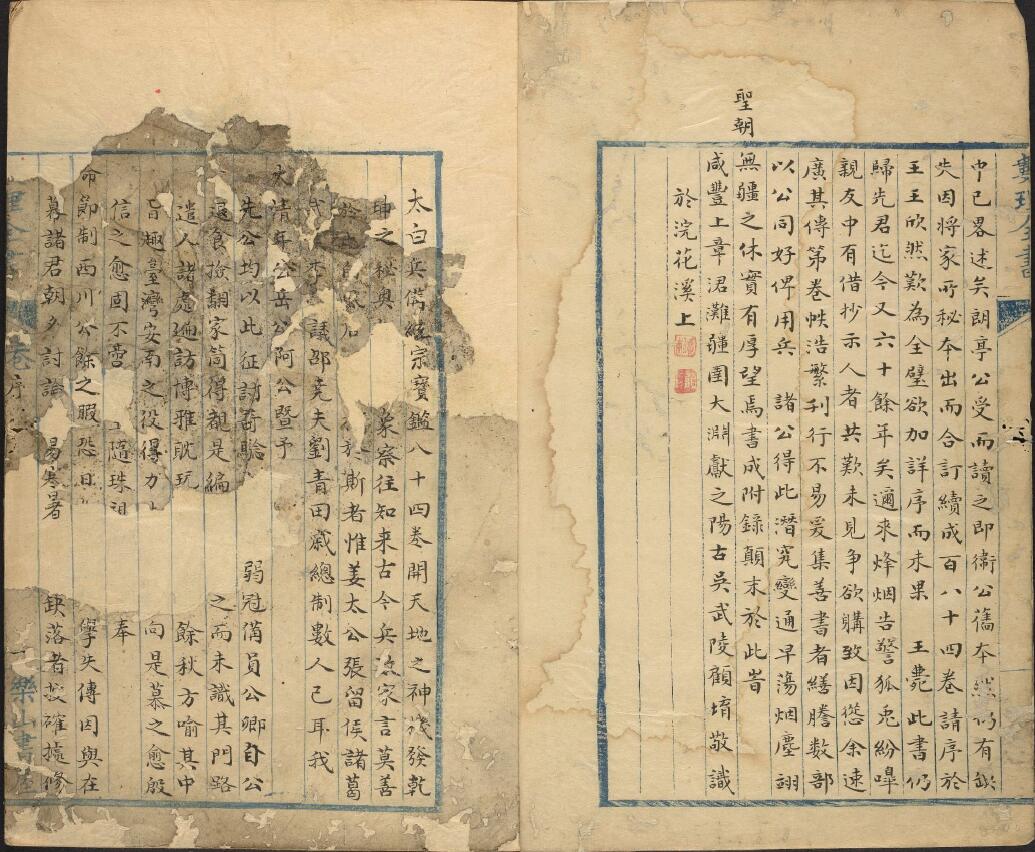 中已畧述矣朗亭公受而讀之即衛公舊本然仍有缺
失因將家所秘本出而合訂續成百八十四卷請序於
王王欣然歎為全璧欲加詳序而未果 王薨此書仍
歸先君迄今又六十餘年矣邇來烽烟告警狐兎紛嘷
親友中有借抄示人者共歎未見争欲購致因慫余速
廣其傳第卷帙浩繁刋行不易爰集善書者繕謄數部
以公同好俾用兵 諸公得此潛究變通早蕩烟塵翊
聖朝無疆之休實有厚望焉書成附錄顛末於此旹
咸豐上章涒灘疆圉大淵獻之陽古吳武陵顧堉敬識
於浣花溪上
太白兵備統宗寶鑑八十四卷開天地之神機發乾
坤之秘奥 象察往知来古今兵法家言莫善
於 於斯者惟姜太公張留侯諸葛
武 議邵堯夫劉青田戚總制數人已耳我
大清年公岳公阿公暨予
先公均以此征討奇驗 弱冠備員公卿自公
退食撿翻家笥得覩是編 之而未識其門路
遣人諸處遍訪博雅耽玩 餘秋方喻其中
旨趣臺灣安南之役得力 向是慕之愈殷
信之愈固不啻 隨珠 奉
命節制西川公餘之暇恐日 學失傳因與在
幕諸君朝夕討論 易寒暑 缺落者按確據修
序
樂山書屋